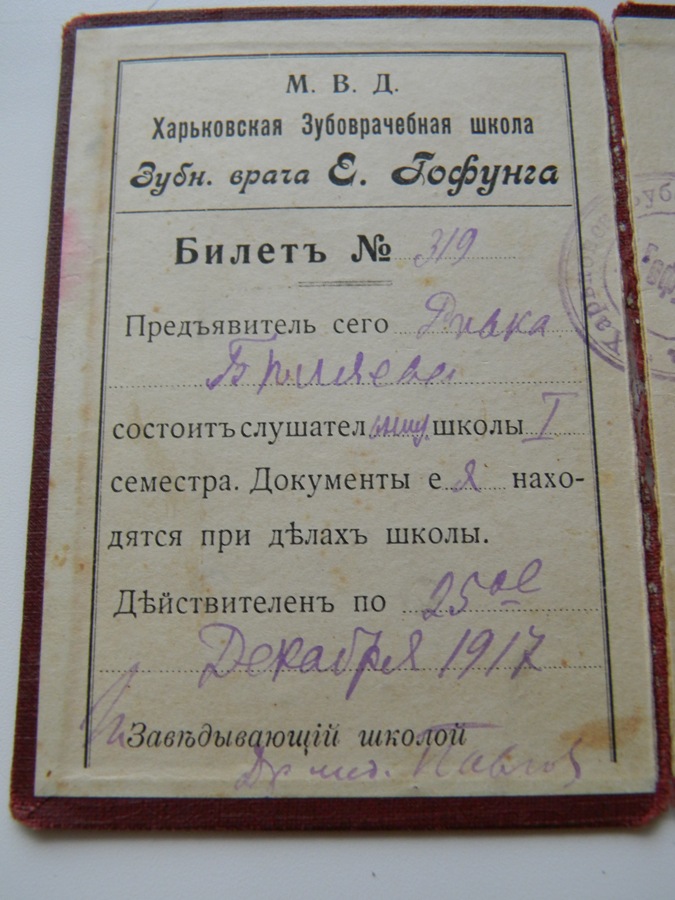 М. В. Д.
Харьковская Зубоврачебная школа
Зубн. врача Е. Гофунга
Билетъ № 319
Предъявитель сего Ривка
состоитъ слушательницей школы I
семестра. Документы ея нахо-
дятся при дѣлахъ школы.
Дѣйствителенъ по 25ое
Декабря 1917
Завѣдывающій школой
Др мед. Павлов
Харьковск Зуб